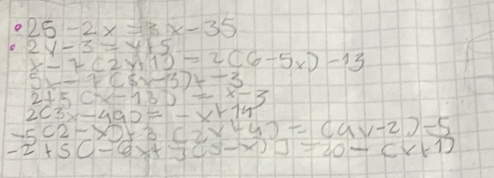 25 - 2x = 3x - 35
2x - 3 = x + 5
x - 7(2x + 1) = 2(6 - 5x) - 13
5x - 7(5x - 3) + -3
2 + 5(x - 13) = x - 3
2(3x - 49) = -x + 14
-5(2 - x) + 3(2x + 4) = (4x - 2) - 5
-2 + 5(-6x + 3(5 - x)) = 20 - (x + 1)